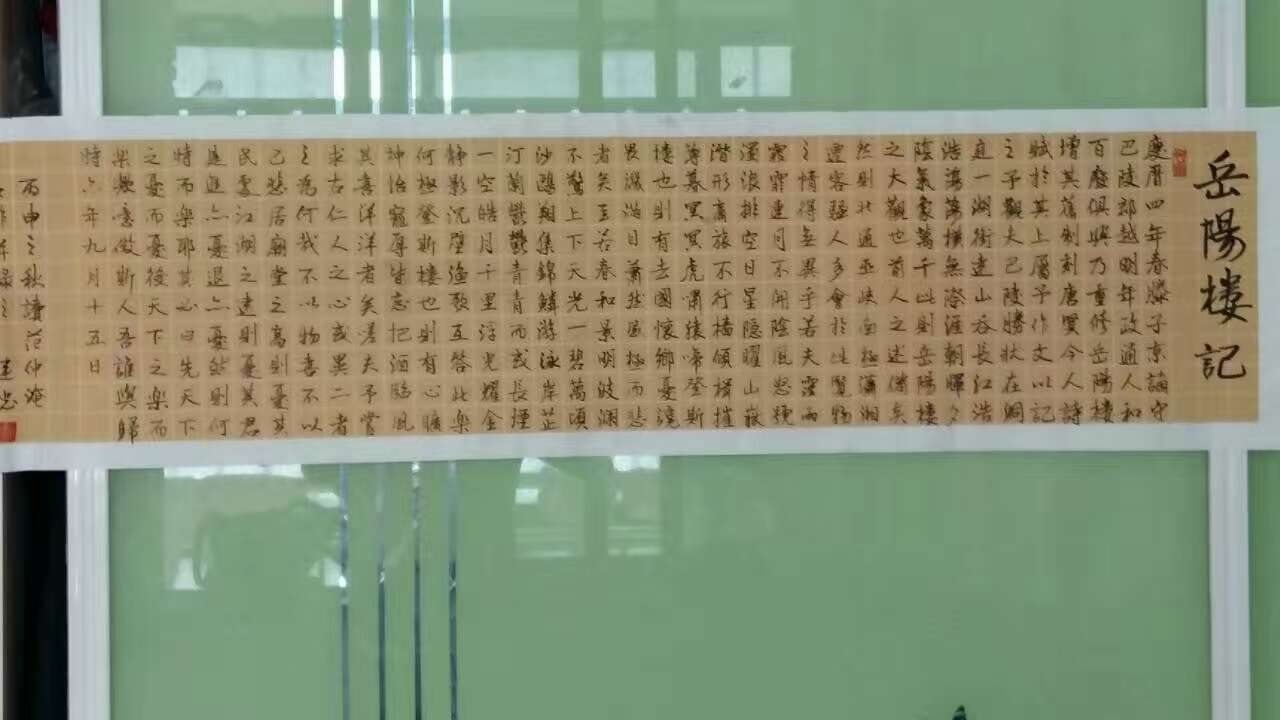 岳陽楼記
慶曆四年春滕子京謫守
巴陵郡越明年政通人和
百廢俱興乃重修岳陽樓
增其舊制刻唐賢今人詩
賦於其上屬予作文以記
之予觀夫巴陵勝狀在洞
庭一湖銜遠山吞長江浩
浩蕩蕩橫無際涯朝暉夕
陰氣象萬千此則岳陽樓
之大觀也前人之述備矣
然則北通巫峽南極瀟湘
遷客騷人多會於此覽物
之情得無異乎若夫霪雨
霏霏連月不開陰風怒號
濁浪排空日星隱曜山嶽
潛形商旅不行檣傾楫摧
薄暮冥冥虎嘯猿啼登斯
樓也則有去國懷鄉憂讒
畏譏滿目蕭然感極而悲
者矣至若春和景明波瀾
不驚上下天光一碧萬頃
沙鷗翔集錦鱗游泳岸芷
汀蘭鬱鬱青青而或長煙
一空皓月千里浮光耀金
靜影沉璧漁歌互答此樂
何極登斯樓也則有心曠
神怡寵辱皆忘把酒臨風
其喜洋洋者矣嗟夫予嘗
求古仁人之心或異二者
之為何哉不以物喜不以
己悲居廟堂之高則憂其
民處江湖之遠則憂其君
是進亦憂退亦憂然則何
時而樂耶其必曰先天下
之憂而憂後天下之樂而
樂歟噫微斯人吾誰與歸
時六年九月十五日
丙申之秋讀范仲淹
錄之